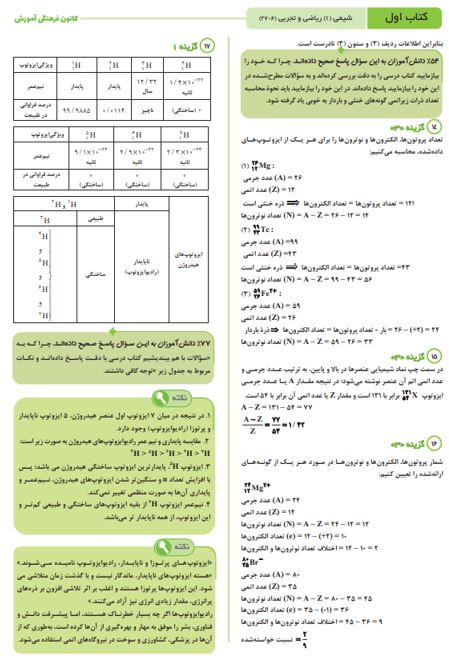 کتاب اول
شیمی (۱) ریاضی و تجربی (۲۷۰۶)
کانون فرهنگی آموزش
بنابراین اطلاعات ردیف (۳) و ستون (۳) نادرست است.
۵۴٪ دانش‌آموزان به این سؤال پاسخ صحیح داده‌اند. چرا که خود را
بیازمایید کتاب درسی را به دقت بررسی کرده‌اند و به سؤالات مطرح‌شده در
این خود را بیازمایید پاسخ داده‌اند. در این خود را بیازمایید باید نحوهٔ محاسبه
تعداد ذرات زیراتمی گونه‌های خنثی و باردار به خوبی یاد گرفته شود.
۱۴ گزینه «۳»
تعداد پروتون‌ها، الکترون‌ها و نوترون‌ها را برای هر یک از ایزوتوپ‌های
داده‌شده، محاسبه می‌کنیم:
(۱) ²⁶₁₂Mg :
عدد جرمی (A) = ۲۶
عدد اتمی (Z) = ۱۲
۱۲ = تعداد پروتون‌ها = تعداد الکترون‌ها ⟹ ذره خنثی است
تعداد نوترون‌ها (N) = A − Z = ۲۶ − ۱۲ = ۱۴
(۲) ⁹⁹₄₃Tc :
عدد جرمی (A) = ۹۹
عدد اتمی (Z) = ۴۳
۴۳ = تعداد پروتون‌ها = تعداد الکترون‌ها ⟹ ذره خنثی است
تعداد نوترون‌ها (N) = A − Z = ۹۹ − ۴۳ = ۵۶
(۳) ⁵⁹₂₆Fe²⁺ :
عدد جرمی (A) = ۵۹
عدد اتمی (Z) = ۲۶
۲۴ = (۲+) − ۲۶ = بار − تعداد پروتون‌ها = تعداد الکترون‌ها ⟹ ذرهٔ باردار
تعداد نوترون‌ها (N) = A − Z = ۵۹ − ۲۶ = ۳۳
۱۵ گزینه «۳»
در سمت چپ نماد شیمیایی عنصرها در بالا و پایین، به ترتیب عدد جرمی و
عدد اتمی اتم آن عنصر نوشته می‌شود؛ در نتیجه مقدار A یا عدد جرمی
ایزوتوپ ¹³¹₅₄X برابر با ۱۳۱ است و مقدار Z یا عدد اتمی آن برابر با ۵۴ است.
A − Z = ۱۳۱ − ۵۴ = ۷۷
(A − Z)/Z = ۷۷/۵۴ ≈ ۱/۴۲
۱۶ گزینه «۳»
شمار پروتون‌ها، الکترون‌ها و نوترون‌ها در مورد هر یک از گونه‌های
ارائه‌شده را تعیین کنیم:
²⁴₁₂Mg²⁺
عدد جرمی (A) = ۲۴
عدد اتمی (Z) = ۱۲
تعداد نوترون‌ها (N) = A − Z = ۲۴ − ۱۲ = ۱۲
تعداد الکترون‌ها (e) = ۱۲ − (+۲) = ۱۰
اختلاف تعداد نوترون‌ها و الکترون‌ها = ۱۲ − ۱۰ = ۲
⁸⁰₃₅Br⁻
عدد جرمی (A) = ۸۰
عدد اتمی (Z) = ۳۵
تعداد نوترون‌ها (N) = A − Z = ۸۰ − ۳۵ = ۴۵
تعداد الکترون‌ها (e) = ۳۵ − (−۱) = ۳۶
اختلاف تعداد نوترون‌ها و الکترون‌ها = ۴۵ − ۳۶ = ۹
نسبت خواسته‌شده = ۲/۹
۱۷ گزینه ۱
ویژگی/ایزوتوپ ¹₁H ²₁H ³₁H ⁴₁H
نیم‌عمر پایدار پایدار ۱۲/۳۲ سال ۱/۴×۱۰⁻²² ثانیه
درصد فراوانی در طبیعت ۹۹/۹۸۸۵ ۰/۰۱۱۴ ناچیز ۰ (ساختگی)
ویژگی/ایزوتوپ ⁵₁H ⁶₁H ⁷₁H
نیم‌عمر ۹/۱×۱۰⁻²² ثانیه ۲/۹×۱۰⁻²² ثانیه ۲/۳×۱۰⁻²³ ثانیه
درصد فراوانی در طبیعت ۰ (ساختگی) ۰ (ساختگی) ۰ (ساختگی)
ایزوتوپ‌های هیدروژن
پایدار ¹H و ²H
ناپایدار (رادیوایزوتوپ)
طبیعی ³H
ساختگی ⁴H و ⁵H و ⁶H و ⁷H
۷۷٪ دانش‌آموزان به این سؤال پاسخ صحیح داده‌اند، چرا که به
سؤالات با هم بیندیشیم کتاب درسی با دقت پاسخ داده‌اند و نکات
مربوط به جدول زیر «توجه کافی داشتند.
نکته
۱. در نتیجه در میان ۷ ایزوتوپ اول عنصر هیدروژن، ۵ ایزوتوپ ناپایدار
و پرتوزا (رادیوایزوتوپ) وجود دارد.
۲. مقایسه پایداری و نیم عمر رادیوایزوتوپ‌های هیدروژن به صورت زیر است:
³H > ⁵H > ⁶H > ⁴H > ⁷H
۳. ایزوتوپ ⁵H، پایدارترین ایزوتوپ ساختگی هیدروژن می باشد؛ پس
با افزایش تعداد n و سنگین‌تر شدن ایزوتوپ‌های هیدروژن، نیم‌عمر و
پایداری آن‌ها به صورت منظمی تغییر نمی‌کند.
۴. نیم‌عمر ایزوتوپ ⁷H از بقیه ایزوتوپ‌های ساختگی و طبیعی کم‌تر و
این ایزوتوپ، از همه ناپایدار تر می‌باشد.
نکته
«ایزوتوپ‌های پرتوزا و ناپایدار، رادیوایزوتوپ نامیده می‌شوند.»
«هسته ایزوتوپ‌های ناپایدار، ماندگار نیست و با گذشت زمان متلاشی می
شود. این ایزوتوپ‌ها پرتوزا هستند و اغلب بر اثر تلاشی افزون بر ذره‌های
پرانرژی، مقدار زیادی انرژی نیز آزاد می‌کنند.»
رادیوایزوتوپ‌ها اگر چه بسیار خطرناک هستند، اما پیشرفت دانش و
فناوری، بشر را موفق به مهار و بهره‌گیری از آن‌ها کرده است، به‌طوری که از
آن‌ها در پزشکی، کشاورزی و سوخت در نیروگاه‌های اتمی استفاده می‌شود.